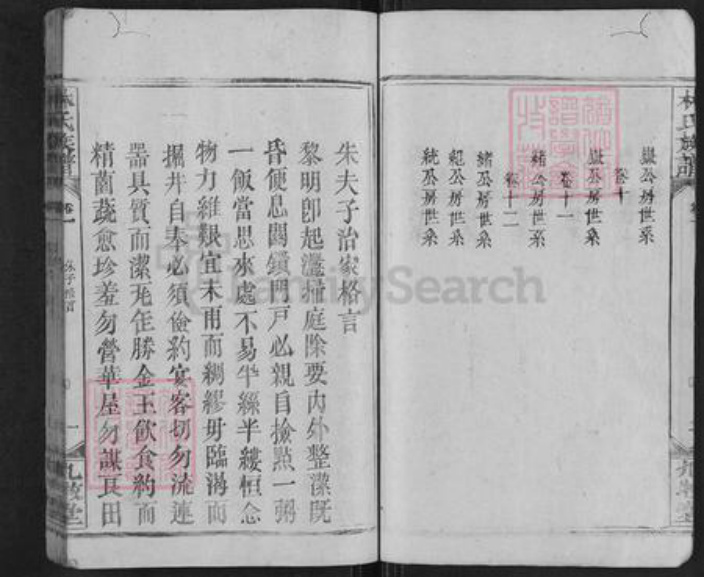 林氏族譜
房世系
卷十
房世系
卷十一
緒公房世系
卷十二
緒公房世系
紀公房世系
統公房世系
朱夫子治家格言
黎明卽起灑掃庭除要內外整潔旣
昏便息關鎖門戶必親自撿㸃一粥
一飯當思來處不易半絲半縷恒念
物力維艱宜未雨而綢繆毋臨渴而
掘井自奉必須儉約宴客切勿流連
器具質而潔瓦缶勝金玉飲食約而
精園蔬愈珍羞勿營華屋勿謀良田
林氏族譜
卷一
一
九牧堂
FamilySearch